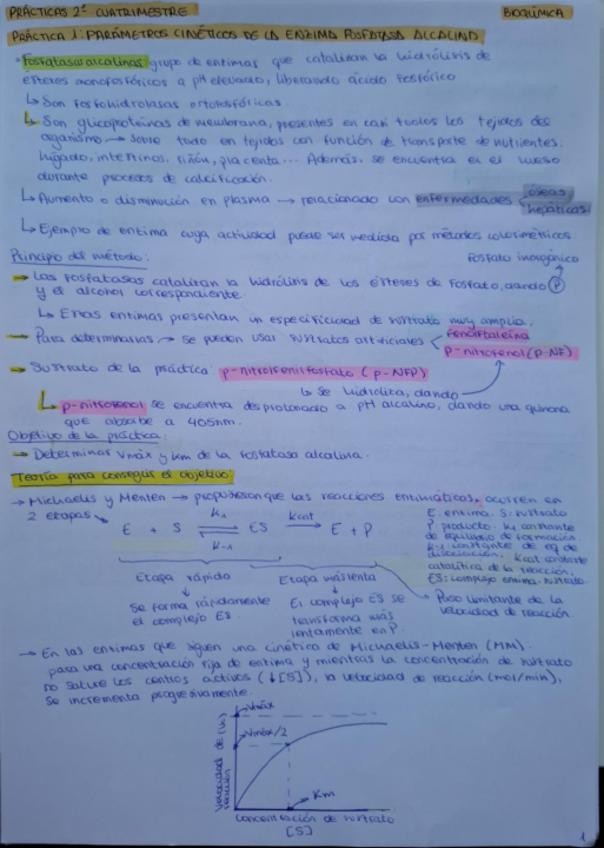 PRÁCTICAS 2º CUATRIMESTRE BIOQUÍMICA
PRÁCTICA 1: PARÁMETROS CINÉTICOS DE LA ENZIMA FOSFATASA ALCALINA
Fosfatasas alcalinas: grupo de enzimas que catalizan la hidrólisis de
ésteres monofosfóricos a pH elevado, liberando ácido fosfórico
↳ Son fosfohidrolasas ortofosfóricas.
↳ Son glicoproteínas de membrana, presentes en casi todos los tejidos del
organismo → sobre todo en tejidos con función de transporte de nutrientes:
hígado, intestinos, riñón, placenta... Además, se encuentra en el hueso
durante procesos de calcificación.
↳ Aumento o disminución en plasma → relacionado con enfermedades óseas
hepáticas
↳ Ejemplo de enzima cuya actividad puede ser medida por métodos colorimétricos
Principio del método: Fosfato inorgánico
→ Las fosfatasas catalizan la hidrólisis de los ésteres de fosfato, dando P
y el alcohol correspondiente.
↳ Estas enzimas presentan un especificidad de sustrato muy amplia.
→ Para determinarlas → se pueden usar sustratos artificiales fenolftaleína
p-nitrofenol (p-NF)
→ Sustrato de la práctica: p-nitrofenilfosfato (p-NFP)
↳ Se hidroliza, dando
↳ p-nitrofenol se encuentra desprotonado a pH alcalino, dando una quinona
que absorbe a 405nm.
Objetivo de la práctica:
→ Determinar Vmáx y Km de la fosfatasa alcalina.
Teoría para conseguir el objetivo:
→ Michaelis y Menten → propusieron que las reacciones enzimáticas ocurren en
2 etapas
E + S k1 ⇌ k-1 ES kcat → E + P
E: enzima. S: sustrato
P: producto. k1 constante
de equilibrio de formación.
k-1: constante de eq de
disociación. kcat constante
catalítica de la reacción.
ES: complejo enzima-sustrato.
Etapa rápida Etapa más lenta
Se forma rápidamente
el complejo ES.
El complejo ES se
transforma más
lentamente en P.
Paso limitante de la
velocidad de reacción.
→ En las enzimas que siguen una cinética de Michaelis-Menten (MM):
para una concentración fija de enzima y mientras la concentración de sustrato
no sature los centros activos (↓[S]), la velocidad de reacción (mol/min),
se incrementa progresivamente.
Vmáx
Vmáx/2
Velocidad de reacción
Km
Concentración de sustrato
[S]
1